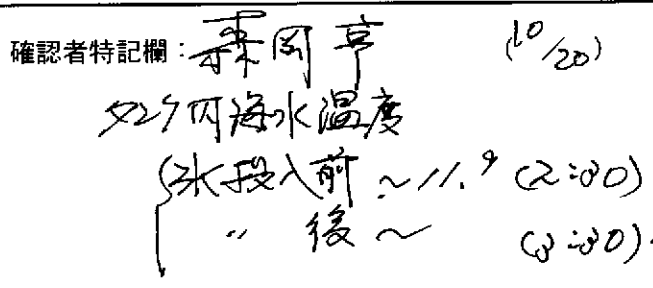 確認者特記欄：森岡亨 (10/20)
タンク内海水温度
氷投入前 ～11.9 (2:30)
〃 後 ～ (3:30)